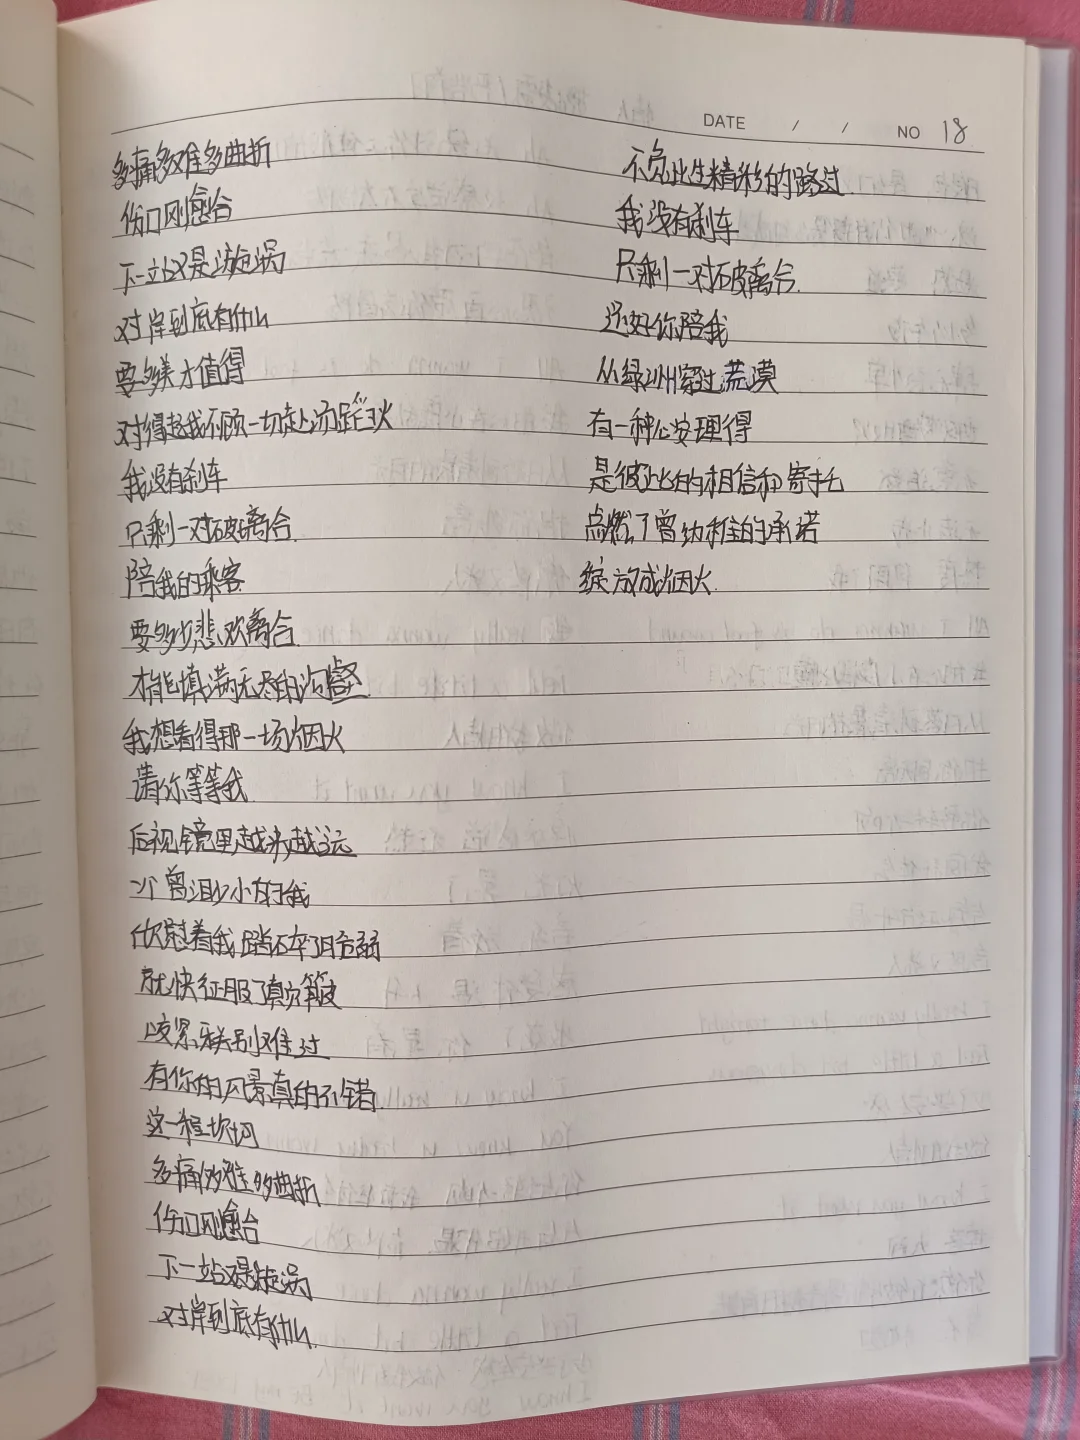 DATE / / NO 18
多痛多难多曲折
伤口刚愈合
下一站又是漩涡
对岸到底有什么
要多美才值得
对得起我不顾一切赴汤蹈火
我没有刹车
只剩一对破离合
陪我的乘客
要多少悲欢离合
才能填满无尽的沟壑
我想看得那一场烟火
请你等等我
后视镜里越来越远
一个曾渺小的我
欣慰着我踏碎了脆弱
就快征服了真实
咬紧牙关别难过
有你的风景真的不错
这一程坎坷
多痛多难多曲折
伤口刚愈合
下一站又是漩涡
对岸到底有什么
不负此生精彩的路过
我没有刹车
只剩一对破离合
还好你陪我
从绿洲穿过荒漠
有一种心安理得
是彼此的相信和寄托
点燃了曾幼稚的承诺
绽放成烟火